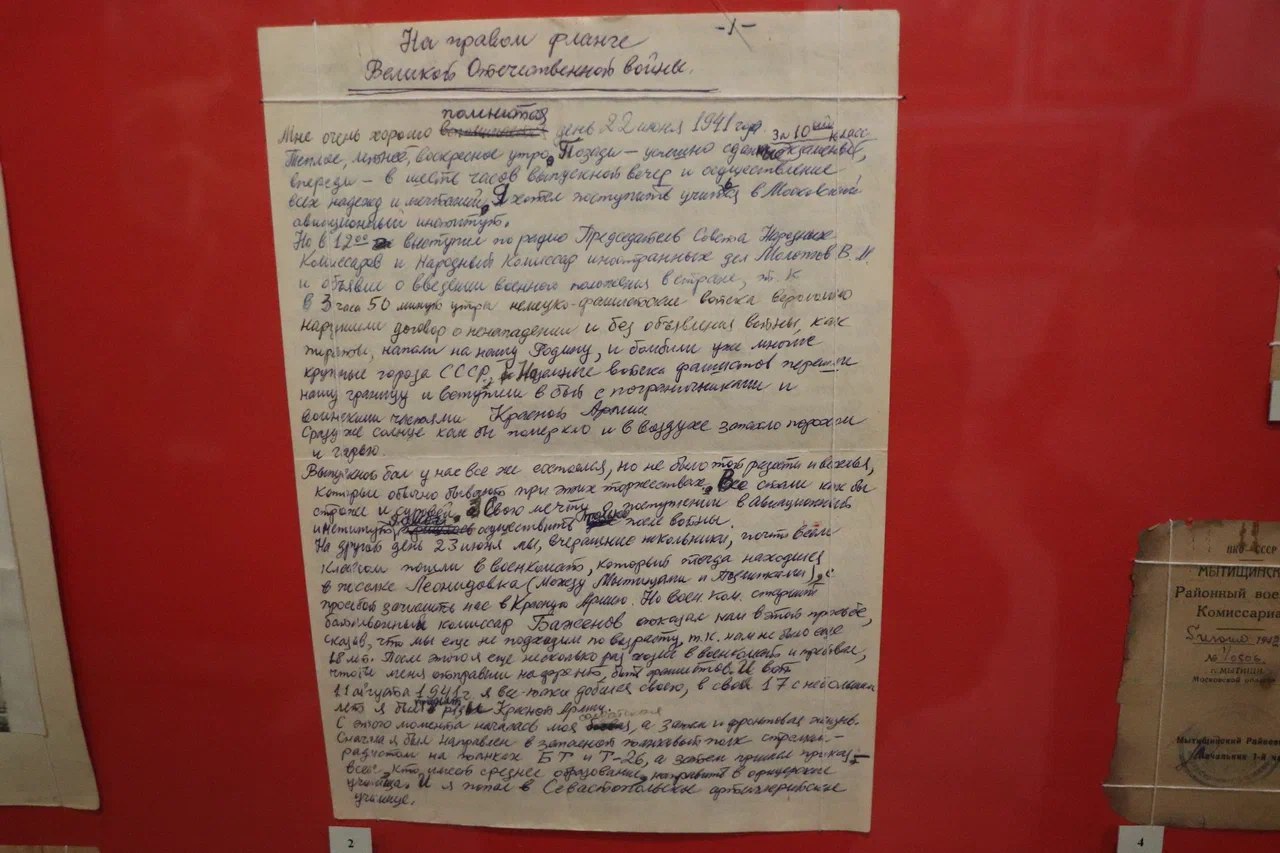 -1-
На правом фланге
Великой Отечественной войны.
помнится
Мне очень хорошо день 22 июня 1941 года.
за 10ый класс
Теплое, летнее, воскресное утро. Позади – успешно сданные экзамены,
впереди – в шесть часов выпускной вечер и осуществление
всех надежд и мечтаний. Я хотел поступить учиться в Московский
авиационный институт.
Но в 12 00 выступил по радио Председатель Совета Народных
Комиссаров и Народный Комиссар иностранных дел Молотов В. М
и объявил о введении военного положения в стране, т. к
в 3 часа 50 минут утра немецко-фашистские войска вероломно
нарушили договор о ненападении и без объявления войны, как
пираты, напали на нашу Родину, и бомбили уже многие
крупные города СССР. Наземные войска фашистов перешли
нашу границу и вступили в бой с пограничниками и
воинскими частями Красной Армии.
Сразу же солнце как бы померкло и в воздухе запахло порохом
и гарью.
Выпускной бал у нас все же состоялся, но не было той радости и веселья,
которые обычно бывают при этих торжествах. Все стали как бы
строже и суровей. Свою мечту о поступлении в авиационный
институт осуществить после войны.
На другой день 23 июня мы, вчерашние школьники, почти всем
классом пошли в военкомат, который тогда находился
в поселке Леонидовка (между Мытищами и Подлипками), с
просьбой зачислить нас в Красную Армию. Но воен ком. старший
батальонный комиссар Баженов отказал нам в этой просьбе,
сказав, что мы еще не подходим по возрасту, т.к. нам не было еще
18 лет. После этого я еще несколько раз ходил в военкомат и требовал,
чтобы меня отправили на фронт, бить фашистов. И вот
11 августа 1941 г. я все-таки добился своего, в свои 17 с небольшим
лет я был в рядах Красной Армии.
солдатская
С этого момента началась моя, а затем и фронтовая жизнь.
Сначала я был направлен в запасной танковый полк стрелком-
радистом на танках БТ и Т-26, а затем пришел приказ –
всех, кто имеет среднее образование, направить в офицерские
училища. И я попал в Севастопольское артиллерийское
училище.
2
НКО – СССР
МЫТИЩИНСК
Районный вое
Комиссариа
№ 1/0506
г. МЫТИЩИ
Московской област
Мытищинский Райвое
Начальник 1-й ча
4